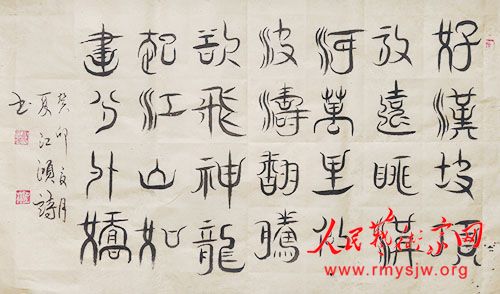 好漢坡頂
放遠眺
河萬里
波濤翻騰
欲飛神龍
起江山如
畫分外嬌
癸卯夏月
夏江詩
书
人民藝術家网
www.rmysjw.org